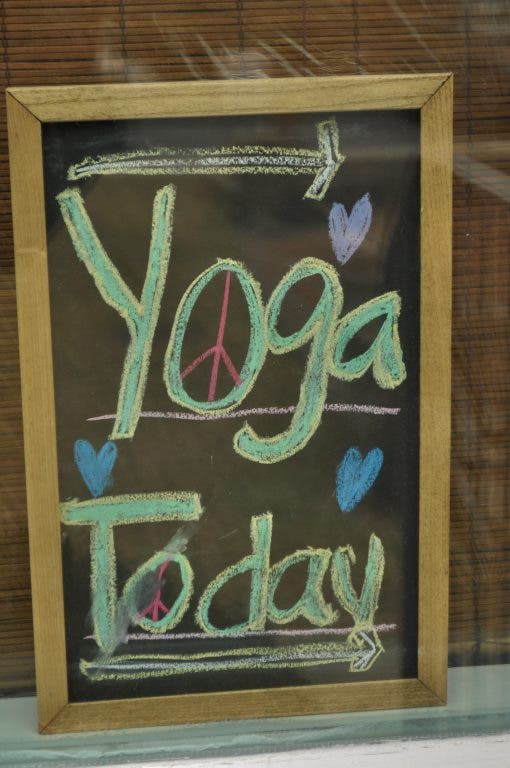 Yoga
Today